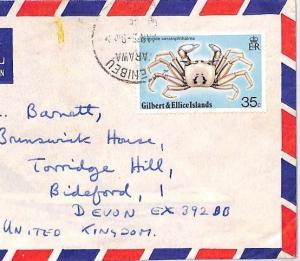 TARAWA
E II R
Gilbert & Ellice Islands
35c
Barnett,
Brunswick House,
Torridge Hill,
Bideford,
DEVON EX392BB
UNITED KINGDOM.